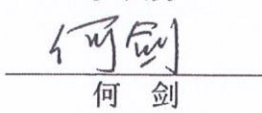 何剑
何 剑